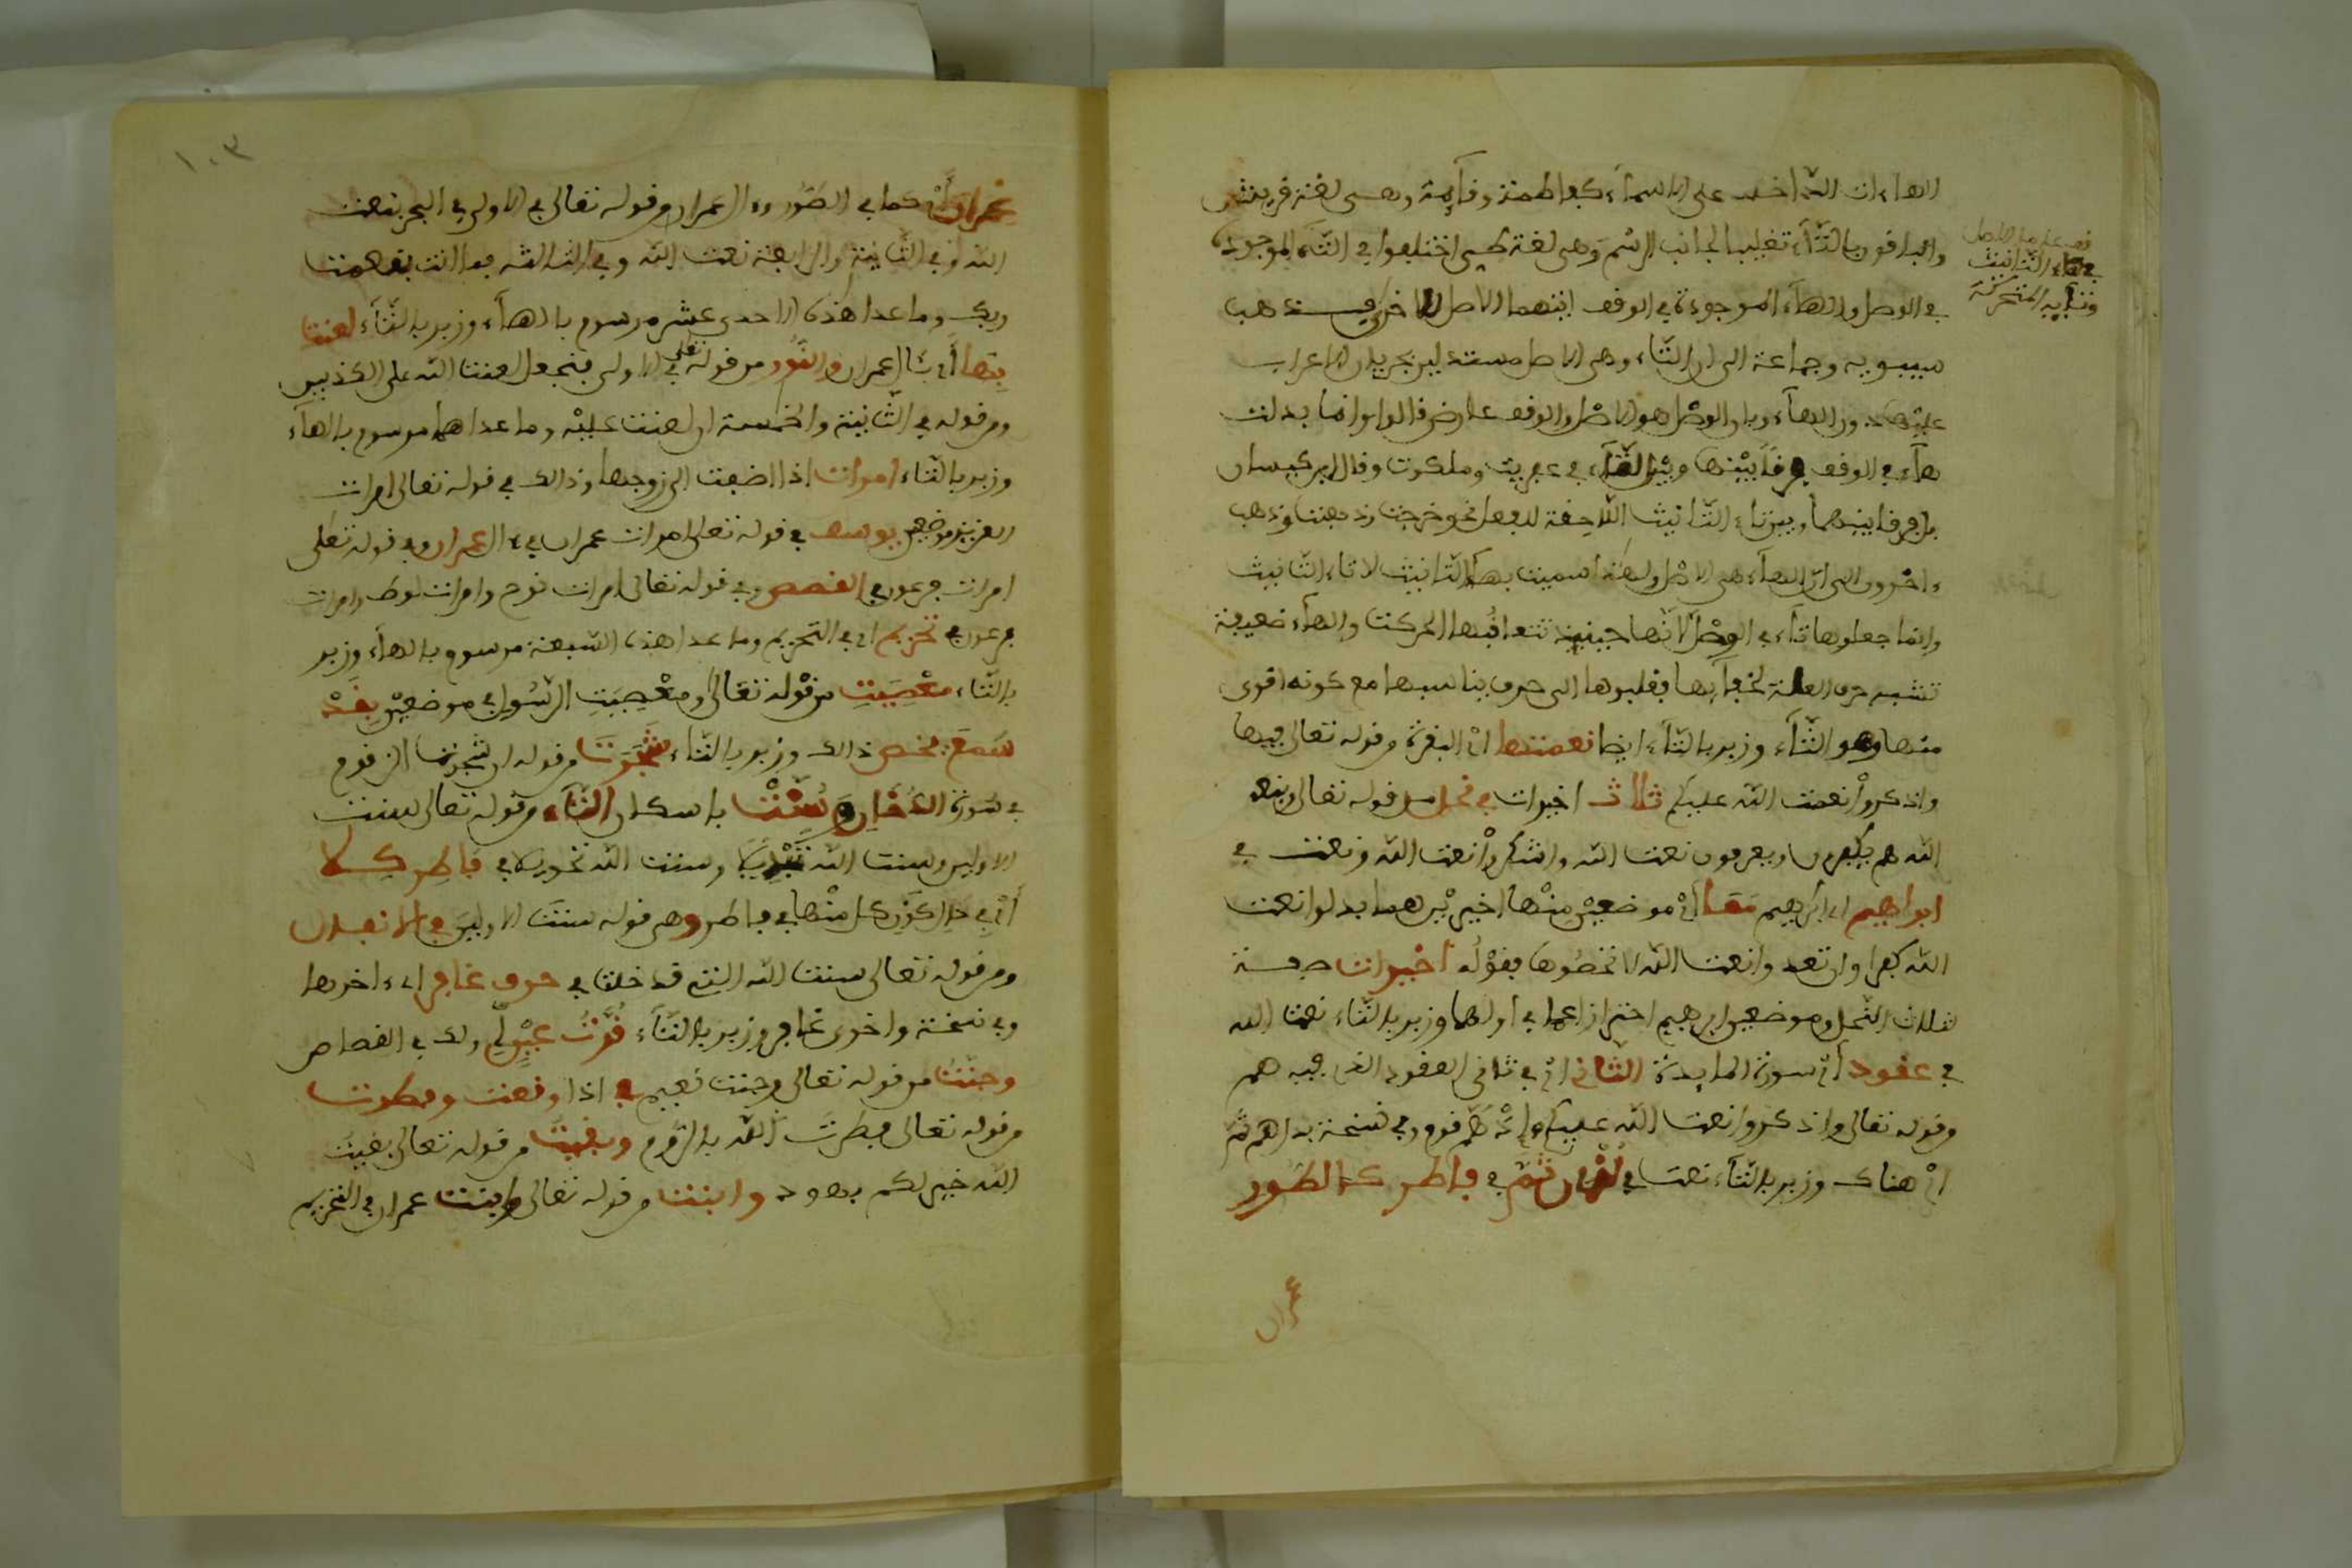 الهاءات الداخلة على الاسماء كفاطمة وقآيمة وهى لغة قريش
والباقون بالتآء تغليبا لجانب الرسم وهى لغة طيى اختلفوا في التآء الموجودة
في الوصل والهآء الموجودة في الوقف ايتهما الاصل للاخرى فذهب
سيبويه وجماعة الى ان التآء هى الاصل مستدلين بجريان الاعراب
عليها دون الهآء وبان الوصل هو الاصل والوقف عارض قالوا وانما بدلت
هآء في الوقف فرقا بينها وبين التآء في عفريت وملكوت وقال ابن كيسان
بل فرقا بينهما وبين تاء التانيث اللاحقة للفعل نحو خرجت وذهبت وذهب
ءاخرون الى ان الهآء هى الاصل ولهذا سميت بهآء التانيث لا تاء التانيث
وانما جعلوها تآء في الوصل لانها حينيذ تتعاقبها الحركات والهآء ضعيفة
تشبه حرف العلة لخفآيها فقلبوها الى حرف يناسبها مع كونه اقوى
منها وهو التآء وزبر بالتآء ايضا نعمتها اي البقرة من قوله تعالى فيها
واذكروا نعمت الله عليكم ثلاث اخيرات في نحل من قوله تعالى وبنعمت
الله هم يكفرون ويعرفون نعمت الله واشكروا نعمت الله ونعمت في
ابراهيم اي ابرهيم معا اي موضعين منها اخيرين هما بدلوا نعمت
الله كفرا وان تعدوا نعمت الله لا تحصوها فقوله اخيرات صفة
لثلاث النحل وموضعي ابرهيم احترازا عما في اولهما وزبر بالتاء نعمت الله
في عقود اي سورة المايدة الثاني اي في ثاني العقود الذي فيه هم
وقوله تعالى واذكروا نعمت الله عليكم إذ هم قوم وفي نسخة بدل هم ثم
اي هناك وزبر بالتآء نعمت في لقمان ثم في فاطر كالطور
عمران
نص على ما هو الاصل
في هاء التانيث
وتآيه المتحركة
١٠٣
عمران اي كما في الطور وءال عمران من قوله تعالى في الاولى في البحر بنعمت
الله وفي الثانية والرابعة نعمت الله وفي الثالثه فما انت بنعمت
ربك وما عدا هذه الاحدى عشر مرسوم بالهآء وزبر بالتآء لعنت
بها اي بـءال عمران والنور من قوله تعلى في الاولى فنجعل لعنت الله على الكذبين
ومن قوله في الثانية والخمسة ان لعنت عليه وما عداهما مرسوم بالهآء
وزبر بالتاء امرات اذا اضيفت الى زوجها وذالك في قوله تعالى امرات
العزيز موضعي يوسف في قوله تعلى امرات عمران في ءال عمران وفي قوله تعلى
امرات فرعون في القصص وفي قوله تعالى امرات نوح وامرات لوط وامرات
فرعون في تحريم اي في التحريم وما عدا هذه السبعة مرسوم بالهآء وزبر
بالتاء معصيت من قوله تعالى ومعصيت الرسول في موضعين بقد
سمع يخص ذالك وزبر بالتاء شجرت من قوله ان شجرت الزقوم
في سورة الدخان وسنت باسكان التآء من قوله تعالى سنت
الاولين وسنت الله تبديلا وسنت الله تحويلا في فاطر كلا
أي في حال كون كل منها في فاطر وهى قوله سنت الاولين في الانفال
ومن قوله تعالى سنت الله التي قد خلت في حرف غافر اي ءاخرها
وفي نسخة واخرى غافر وزبر بالتآء قرت عين لي ولك في القصاص
وجنت من قوله تعالى وجنت نعيم في اذا وقعت وفطرت
من قوله تعالى فطرت الله بالروم وبقيت من قوله تعالى بقيت
الله خير لكم بهود وابنت من قوله تعالى وابنت عمران في التحريم